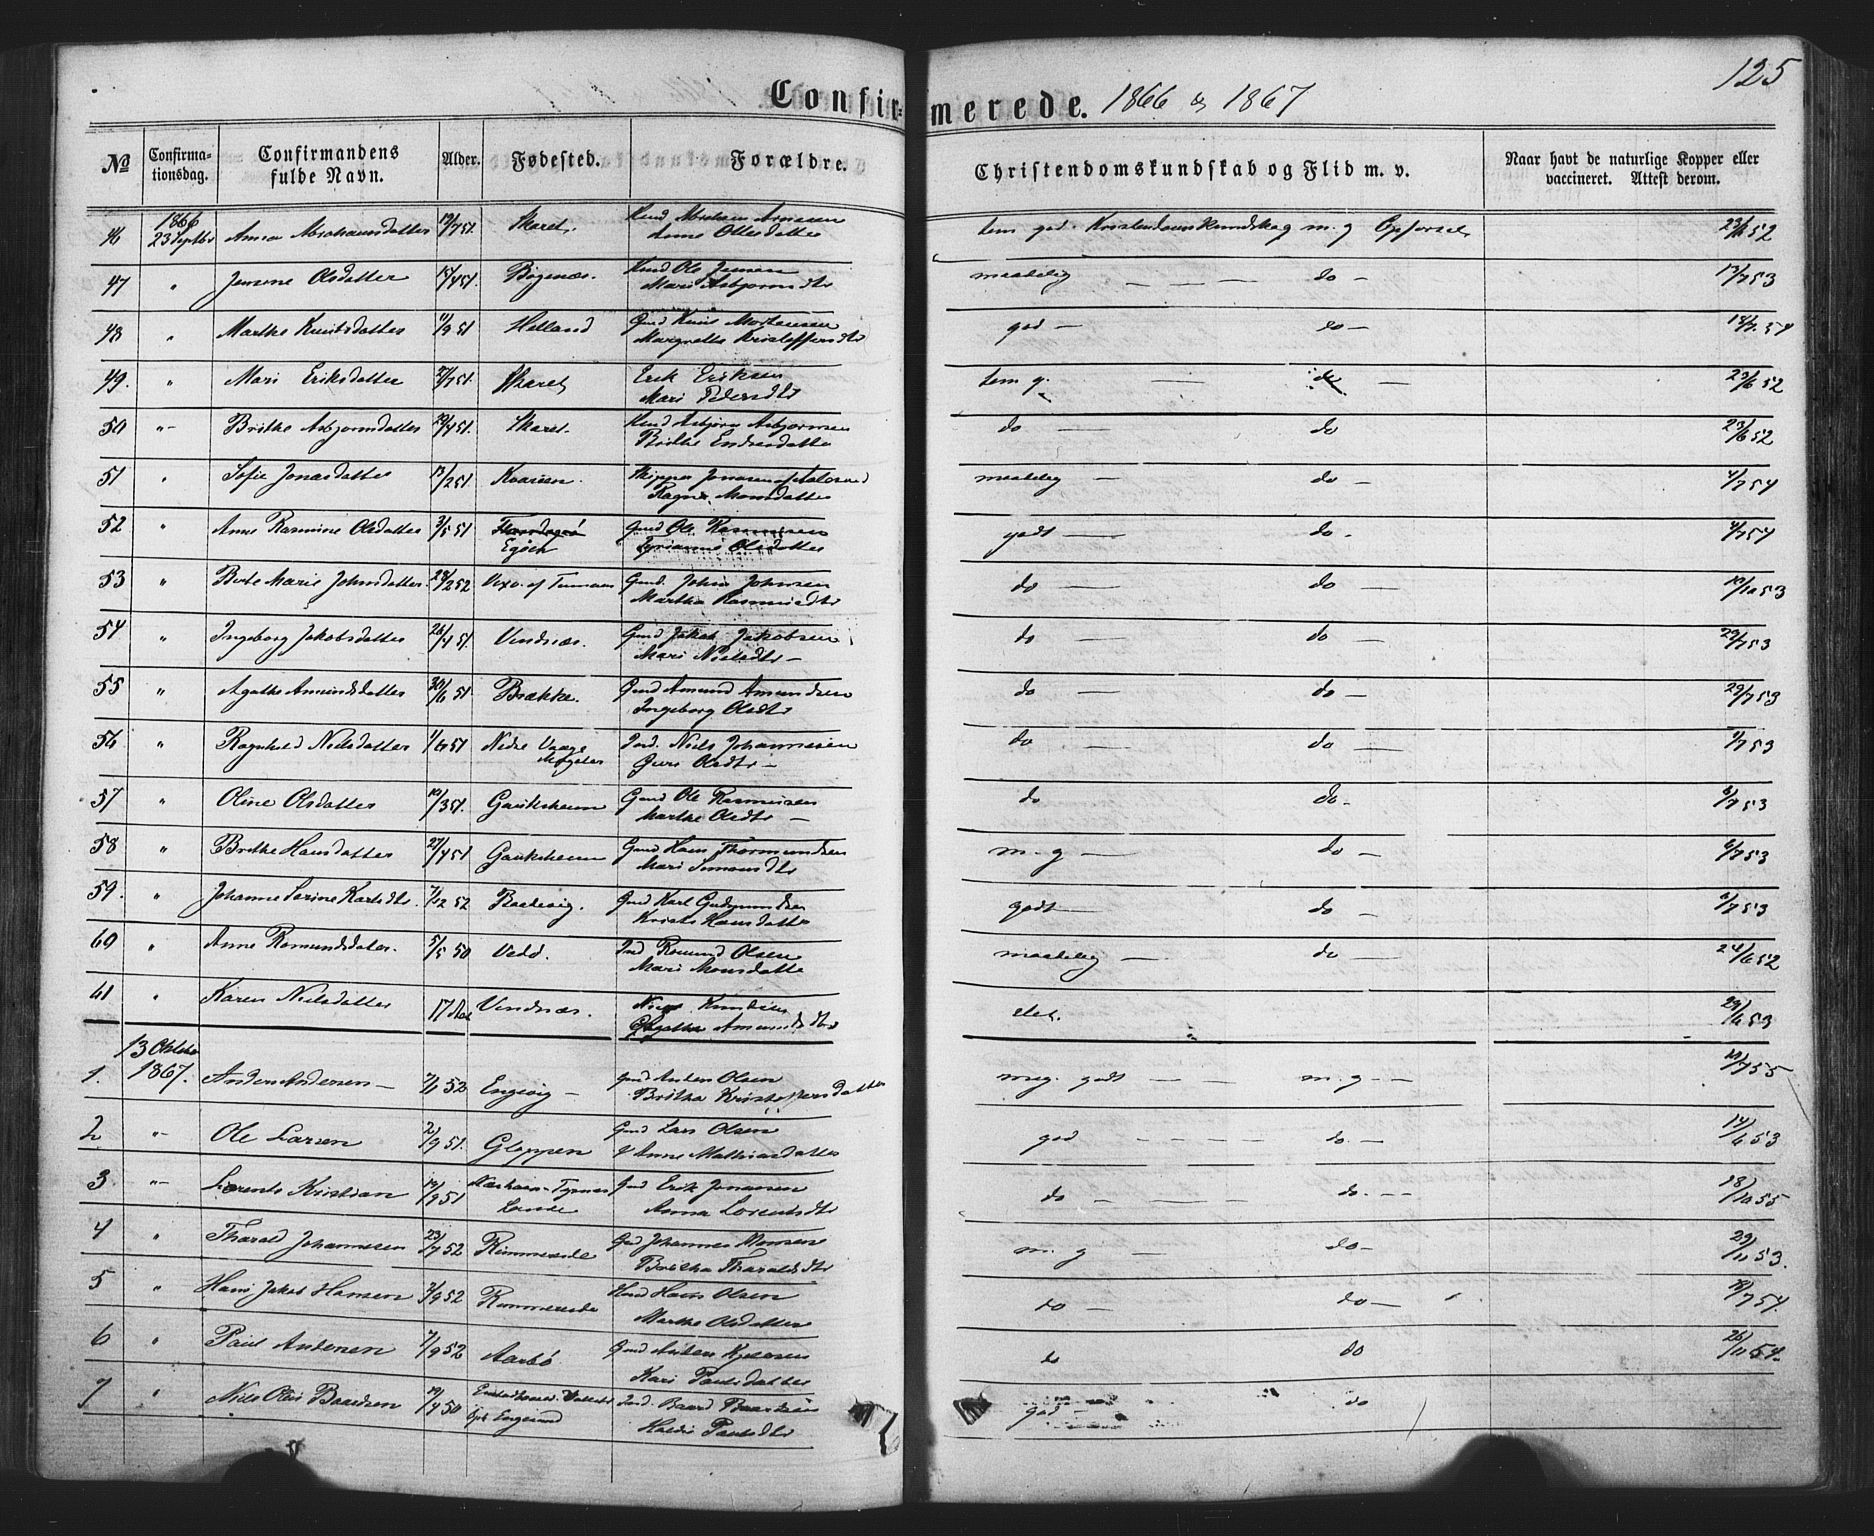 125
Confirmerede. 1866 & 1867
No Confirmationsdag. Confirmandens fulde Navn. Alder. Fødested. Forældre. Christendomskundskab og Flid m. v. Naar havt de naturlige Kopper eller vaccineret. Attest derom.
46 1866 23 Septbr Anna Abrahamsdatter 12/7 51. Skaret. Abraham Anne Olsdatter tem. god. Kristendomskundskag m. g Opførsel 23/6 52
47 " Jensine Olsdatter 14/4 51. Bøgenæs. Ole Jensen Mari Asbjørnsdtr maadelig — — — do — 13/7 53
48 " Marthe Knutsdatter 11/9 51 Helland Gmd Knut Mortensen Margrethe Kristoffersdtr god — do — 14/7 54
49. " Mari Eriksdatter 27/7 51. Skaret Erik Eriksen Mari Pedersdtr tem g. — do — 23/6 52
50 " Brithe Asbjørnsdatter 29/4 51. Skaret. Asbjørn Asbjørnsen Brithe Endresdatter do — do 23/6 52
51 " Sofie Jonasdatter 13/2 51. Jonasen af Aalesund Ragna Monsdatter maadelig — do — 4/7 54
52 " Anne Rasmine Olsdatter 3/5 51 Gmd Ole Rasmussen Olsdatter godt — do. 4/7 54
53 " Berte Marie Johnsdatter. 28/2 52 Gmd. John Johnsen Martha Rasmusdtr do — do 19/10 53
54 " Ingeborg Jakobsdatter 26/4 51. Vendnæs. Gmd Jakob Jakobsen Mari Nielsdtr — do — do — 29/7 53
55 " Agathe Amundsdatter 30/6 51 Brække. Gmd Amund Amundsen Ingeborg Olsdtr do — do — 29/7 53
56 " Ragnhild Nielsdatter 1/6 51 Nedre Vaage Ind. Niels Johannesen Guri Olsdtr — do — do — 1/7 53
57 " Oline Olsdatter 19/3 51. Gauksheim Gmd Ole Rasmusen Marthe Olsdtr — do do — 6/7 53
58 " Brithe Hansdatter 27/4 51 Gauksheim Gmd Hans Thormundsen Mari Simonsdtr m. g — do — 6/7 53
59. " Johanne Serine Karlsdtr. 7/12 52 Badevig. Gmd Karl Gudmundsen Hansdatter godt — do — 6/7 53
60 " Anne Romundsdater. 5/5 50 Vedø. Ind Romund Olsen Mari Monsdatter maadelig — do — 24/6 52
61 " Karen Nielsdatter 17 Aar Vendnæs. Niels Knudsen Agatha Amundsdtr slet. 29/6 53
13 Oktober 1867.
1. Anders Andersen — 7/1 53 Engevig — Gmd Anders Olsen Britha Kristoffersdatter meg. godt — — m. g — — 10/7 55
2 " Ole Larsen 2/9 51. Gloppen Gmd Lars Olsen Anne Mathiasdatter god — — — do. — 14/6 53
3 " Lorents Kristian 19/9 51 Gmd Erik Jonassen Anna Lorentsdtr do — — — do. — 18/10 55
4 " Tharald Johannessen 23/7 52 Rimmereide Gmd Johannes Monsen Britha Tharaldsdtr m. g — — do — 29/11 53.
5 " Hans Jakob Hansen 3/9 52 Rimmereide Hans Olsen Marthe Olsdatter do — do — 10/7 54.
6 " Paul Andersen 7/9 52 Aarbø Gmd Anders Kari Paulsdatter do do 26/11 54.
7 " Niels Olai Baardsen 19/4 50 Ind. Baard Baardsen Paulsdtr god — do